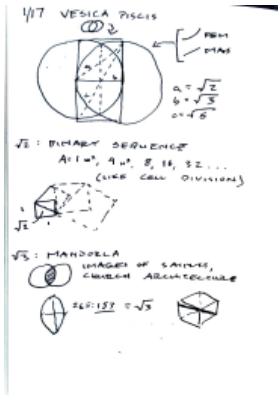 1/17 VESICA PISCIS
FEM
MAS
a = √2
b = √3
c = √5
√2 : BINARY SEQUENCE
8, 16, 32 ...
(LIKE CELL DIVISION)
√2
√3 : MANDORLA
IMAGES OF SAINTS,
CHURCH ARCHITECTURE
265:153 = √3